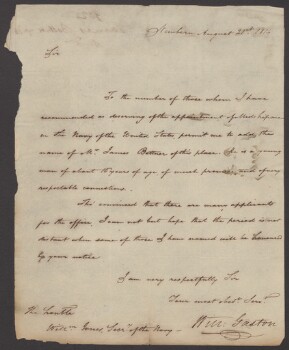 Newbern August 23rd
Sir
To the number of those whom I have
recommended as deserving of the appointment of Midshipman
in the Navy of the United States permit me to add the
name of Mr. James Bettner of this place. He is a young
man of about 16 years of age of much promise and of very
respectable connections.
Tho' convinced that there are many applicants
for the office, I can not but hope that the period is not
distant when some of those I have named will be honoured
by your notice
I am very respectfully Sir
Your most obedt Servt
Will: Gaston
The Honble
Willm Jones Secy of the Navy